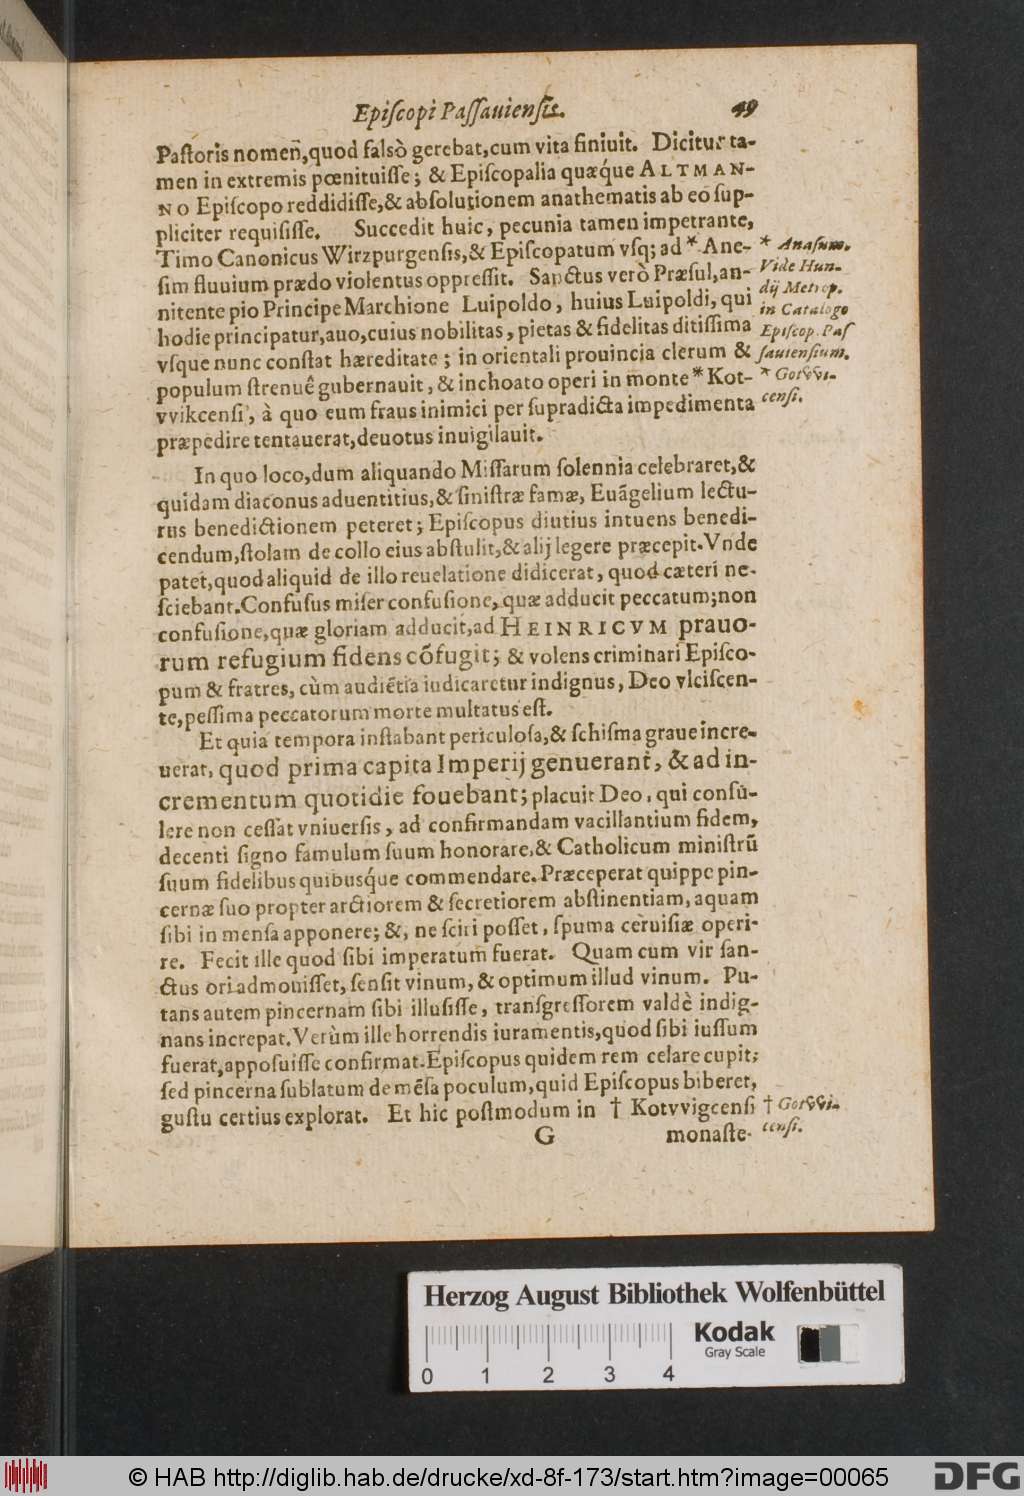 Epiſcopi Paſſauienſis. 49
Paſtoris nomen̄, quod falsò gerebat, cum vita finiuit. Dicitur ta-
men in extremis pœnituiſſe; & Epiſcopalia quæq́ue ALTMAN-
NO Epiſcopo reddidiſſe, & abſolutionem anathematis ab eo ſup-
pliciter requiſiſſe. Succedit huic, pecunia tamen impetrante,
Timo Canonicus Wirzpurgenſis, & Epiſcopatum vſq; ad * Ane-
ſim fluuium prædo violentus oppreſſit. Sanctus verò Præſul, an-
nitente pio Principe Marchione Luipoldo, huius Luipoldi, qui
hodie principatur, auo, cuius nobilitas, pietas & fidelitas ditiſſima
vſque nunc conſtat hæreditate; in orientali prouincia clerum &
populum ſtrenuê gubernauit, & inchoato operi in monte * Kot-
vvikcenſi, à quo eum fraus inimici per ſupradicta impedimenta
præpedire tentauerat, deuotus inuigilauit.
* Anaſum.
Vide Hun-
dij Metrop.
in Catalogo
Epiſcop. Paſ
ſauienſium.
* Gotvvi-
cenſi.
In quo loco, dum aliquando Miſſarum ſolennia celebraret, &
quidam diaconus aduentitius, & ſiniſtræ famæ, Euāgelium lectu-
rus benedictionem peteret; Epiſcopus diutius intuens benedi-
cendum, ſtolam de collo eius abſtulit, & alij legere præcepit. Vnde
patet, quod aliquid de illo reuelatione didicerat, quod cæteri ne-
ſciebant. Confuſus miſer confuſione, quæ adducit peccatum; non
confuſione, quæ gloriam adducit, ad HEINRICVM prauo-
rum refugium fidens cōfugit; & volens criminari Epiſco-
pum & fratres, cùm audiētia iudicaretur indignus, Deo vlciſcen-
te, peſſima peccatorum morte multatus eſt.
Et quia tempora inſtabant periculoſa, & ſchiſma graue incre-
uerat, quod prima capita Imperij genuerant, & ad in-
crementum quotidie fouebant; placuit Deo, qui conſu-
lere non ceſſat vniuerſis, ad confirmandam vacillantium fidem,
decenti ſigno famulum ſuum honorare, & Catholicum miniſtrū
ſuum fidelibus quibusq́ue commendare. Præceperat quippe pin-
cernæ ſuo propter arctiorem & ſecretiorem abſtinentiam, aquam
ſibi in menſa apponere; &, ne ſciri poſſet, ſpuma ceruiſiæ operi-
re. Fecit ille quod ſibi imperatum fuerat. Quam cum vir ſan-
ctus ori admouiſſet, ſenſit vinum, & optimum illud vinum. Pu-
tans autem pincernam ſibi illuſiſſe, tranſgreſſorem valdè indig-
nans increpat. Verùm ille horrendis iuramentis, quod ſibi iuſſum
fuerat, appoſuiſſe confirmat. Epiſcopus quidem rem celare cupit;
ſed pincerna ſublatum de mēſa poculum, quid Epiſcopus biberet,
guſtu certius explorat. Et hic poſtmodum in † Kotvvigcenſi
† Gotvvi-
cenſi.
G monaſte-
Herzog August Bibliothek Wolfenbüttel
Kodak
Gray Scale
0 1 2 3 4
© HAB http://diglib.hab.de/drucke/xd-8f-173/start.htm?image=00065
DFG